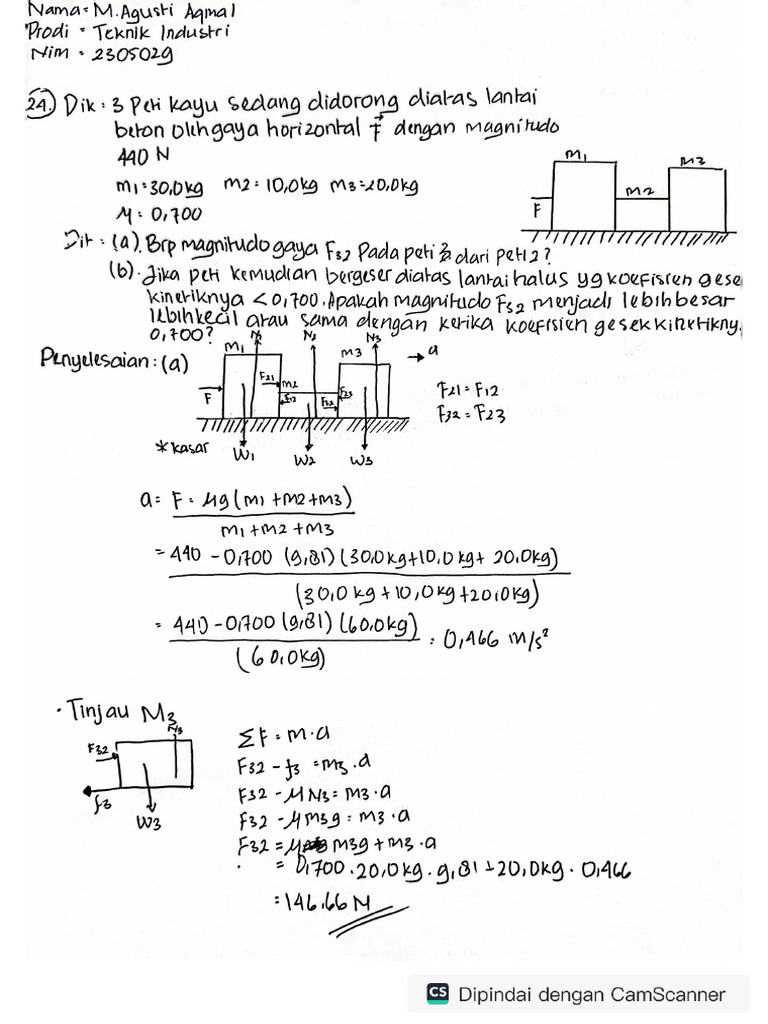 Nama = M. Agusti Aqmal
Prodi = Teknik Industri
Nim = 2305029
24. Dik : 3 Peti kayu sedang didorong diatas lantai
beton oleh gaya horizontal F dengan magnitudo
440 N
m1 = 30,0 kg m2 = 10,0 kg m3 = 20,0 kg
μ : 0,700
M1
M2
M3
F
Dit : (a). Brp magnitudo gaya F32 Pada peti 3 dari peti 2?
(b). Jika peti kemudian bergeser diatas lantai halus yg koefisien gese
kinetiknya < 0,700. Apakah magnitudo F32 menjadi lebih besar
lebih kecil atau sama dengan ketika koefisien gesek kinetikny.
0,700?
Penyelesaian : (a)
M1 N1 N2 M3 N3 → a
F F21 M2 F12 F32 F23
* kasar W1 W2 W3
F21 = F12
F32 = F23
a = F - μg (m1 + m2 + m3)
m1 + m2 + m3
= 440 - 0,700 (9,81) (30,0 kg + 10,0 kg + 20,0 kg)
(30,0 kg + 10,0 kg + 20,0 kg)
= 440 - 0,700 (9,81) (60,0 kg)
(60,0 kg)
= 0,466 m/s²
• Tinjau M3
N3
F32
f3
W3
ΣF = m . a
F32 - f3 = m3 . a
F32 - μ N3 = m3 . a
F32 - μ m3 g = m3 . a
F32 = μ m3 g + m3 . a
= 0,700 . 20,0 kg . 9,81 + 20,0 kg . 0,466
= 146,66 N
CS Dipindai dengan CamScanner